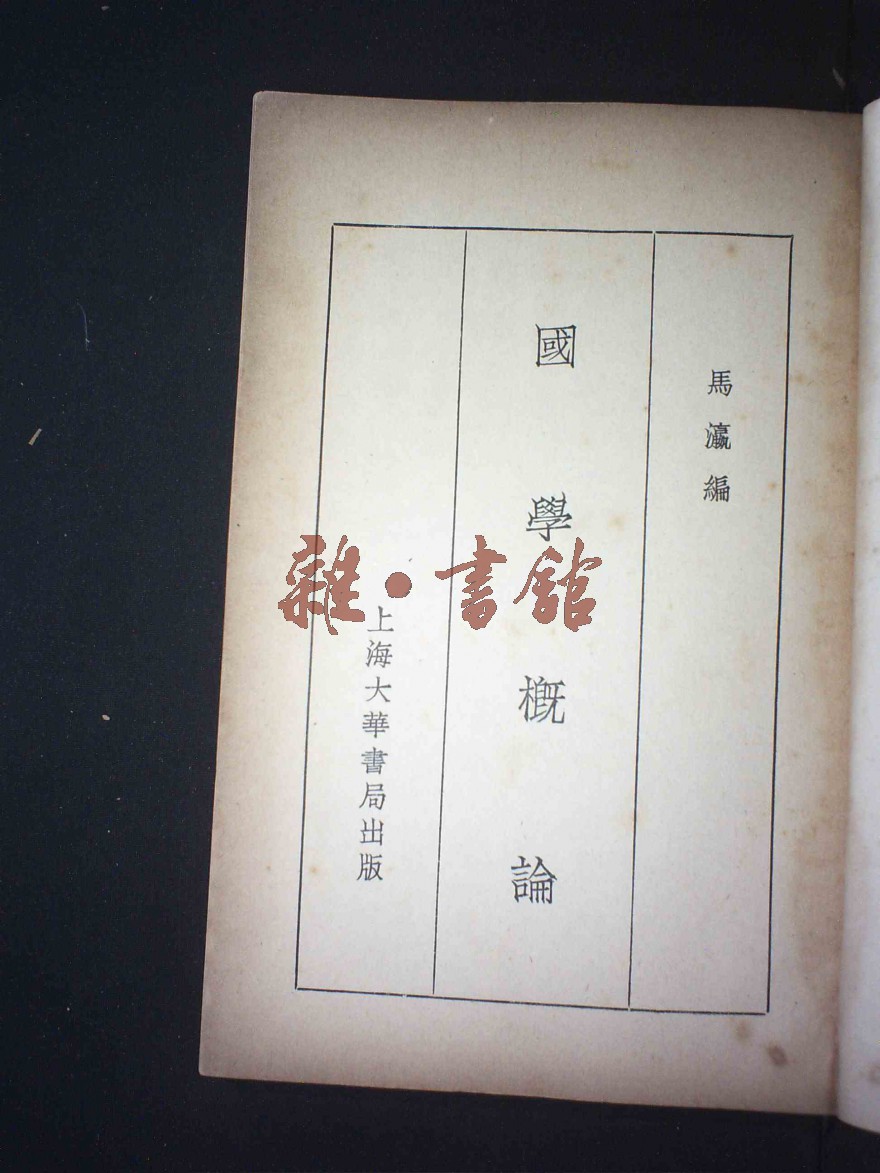 馬瀛編
國學概論
上海大華書局出版
雜·書館